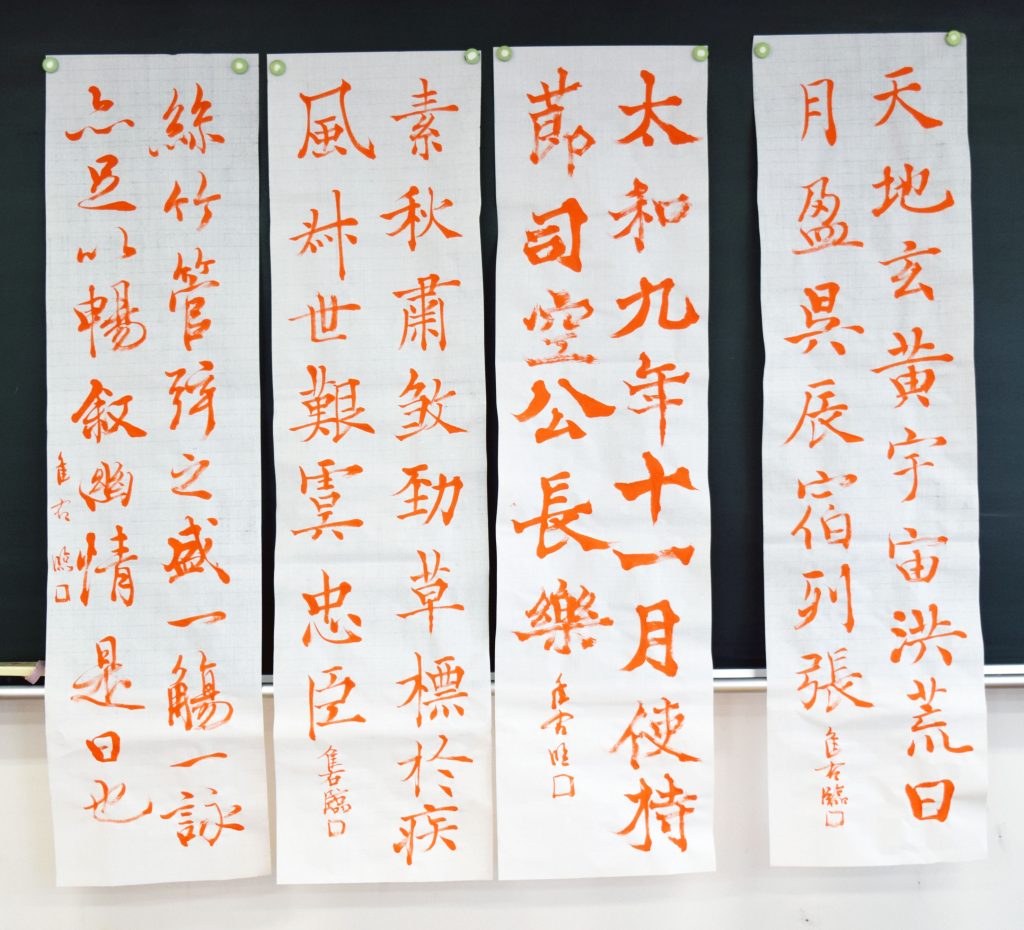 天地玄黄宇宙洪荒日
月盈昃辰宿列張
右臨
太和九年十一月使持
節司空公長樂
臨
素秋肅煞勁草標於疾
風叔世艱虞忠臣
臨
絲竹管弦之盛一觴一詠
亦足以暢叙幽情是日也
右臨